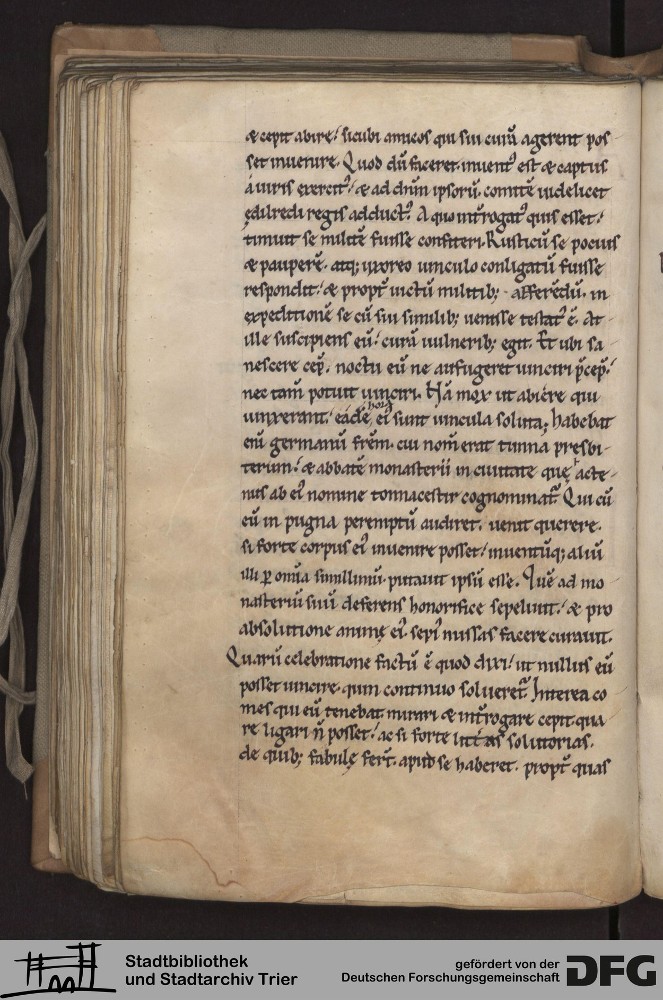 & cepit abire / sicubi amicos qui sui curā agerent pos
set inuenire. Quod dū faceret. inuent᾿ est & captus
a uiris exercit᾿ / & ad dn̄m ipsorū. comitē uidelicet
ędilredi regis adduct᾿. A quo int̄rogat᾿ quis esset /
timuit se militē fuisse confiteri. Rusticū se pocius
& pauperē. atq; uxoreo uinculo conligatū fuisse
respondit / & propt̄ uictū militib; afferēdū. in
expeditionē se cū sui similib; uenisse testat᾿ ē. At
ille suscipiens eū / curā uulnerib; egit. Et ubi sa
nescere cep̄. noctu eū ne aufugeret uinciri p̄cep̄ /
nec tam̄ potuit uinciri. Nā mox ut abiere qui
uinxerant / eadē hora ei᾿ sunt uincula soluta; habebat
eni germanū fr̄em. cui nom̄ erat tunna presbi-
terum / & abbatē monasterii in ciuitate quę acte-
nus ab ei᾿ nomine tonnacestir cognominat̄. Qui cū
eū in pugna peremptū audiret. uenit querere.
si forte corpus ei᾿ inuenire posset / inuentūq; aliū
illi ꝑ omīa simillimū. putauit ipsū esse. Quē ad mo
nasteriū suū deferens honorifice sepeliuit. / & pro
absolutione animę ei᾿. sepi᾿ missas facere curauit.
Quarū celebratione factū ē quod dixi / ut nullus eū
posset uincire. quin continuo solueret̄. Interea co
mes qui eū tenebat mirari & int̄rogare cepit qua
re ligari n̄ posset / ac si forte litt̄as solutorias.
de quib; fabulę fer̄t. apud se haberet. propt̄ quas
Stadtbibliothek
und Stadtarchiv Trier
gefördert von der
Deutschen Forschungsgemeinschaft
DFG